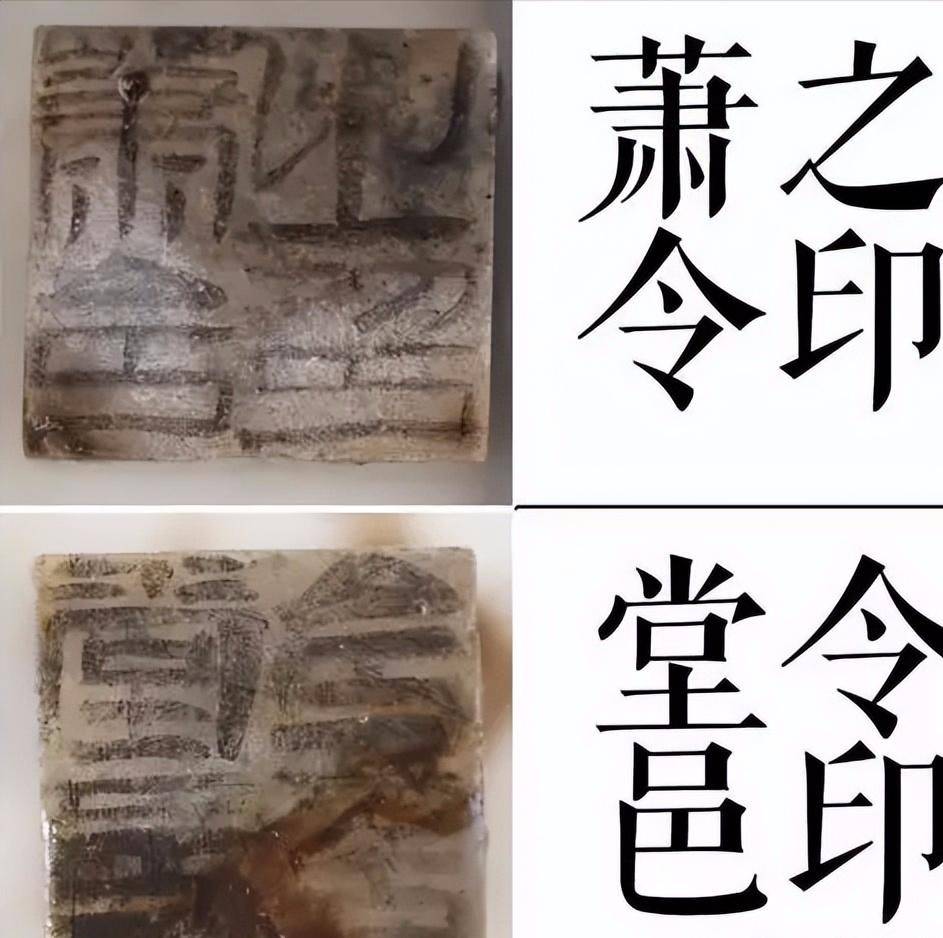 萧之
令印
堂令
邑印